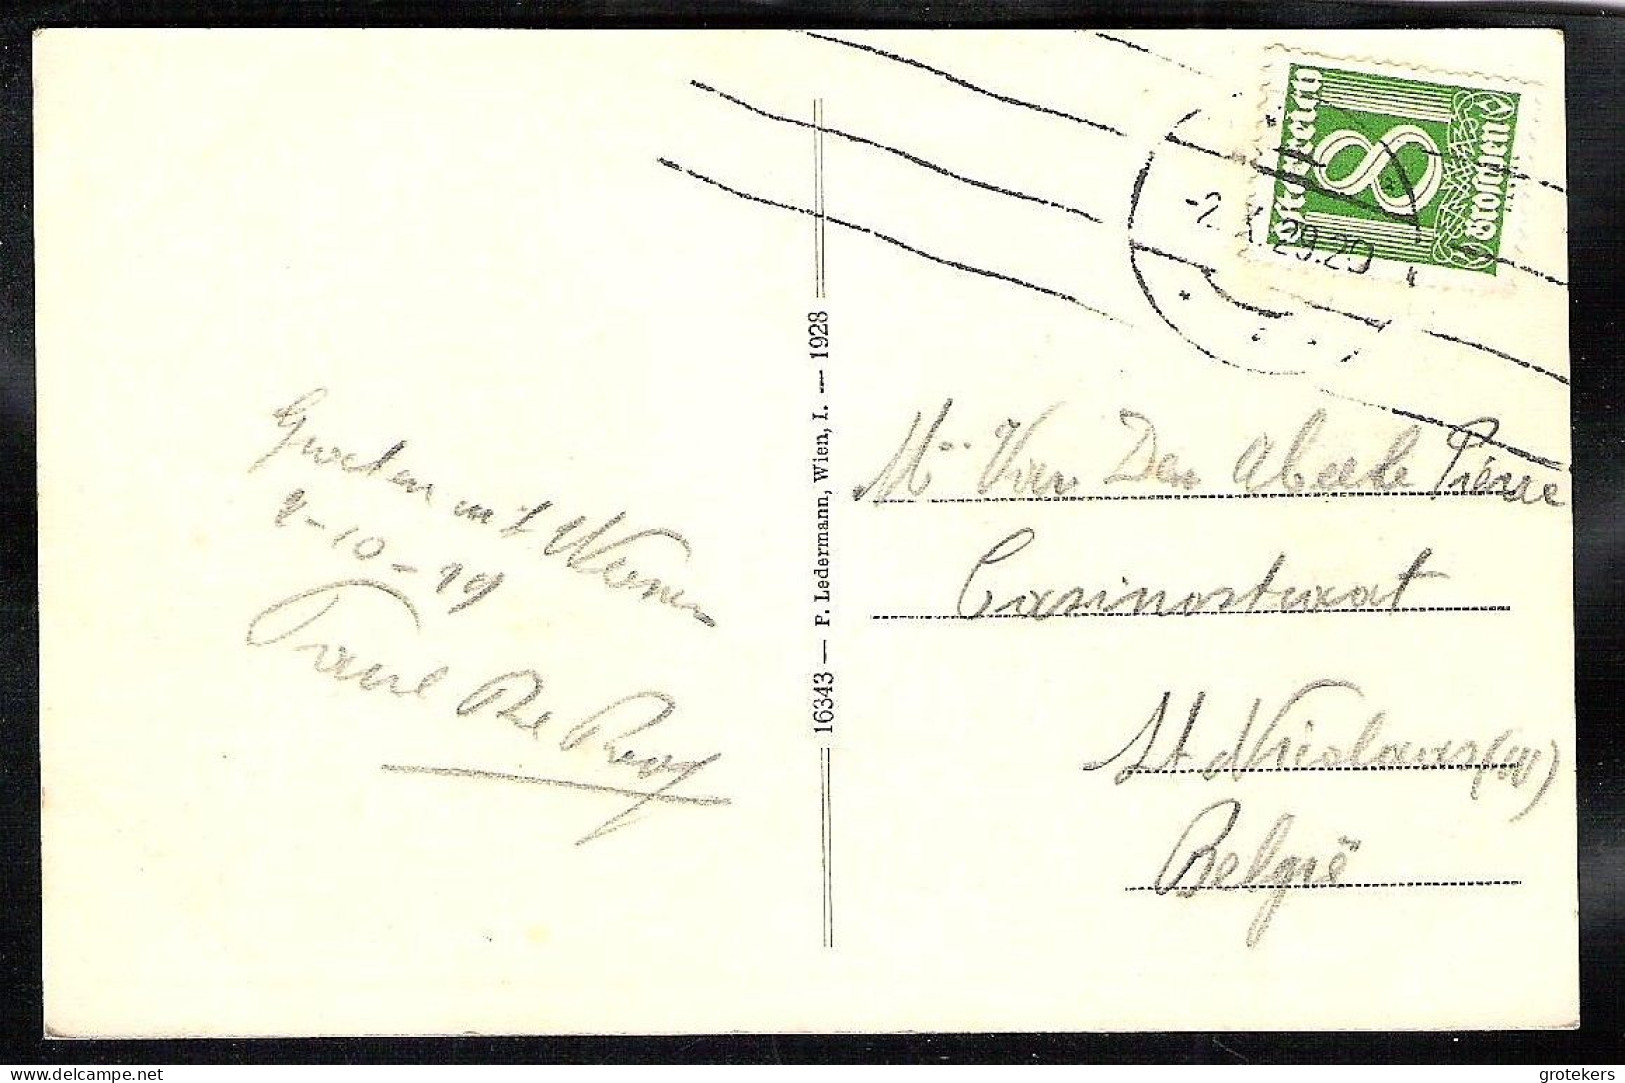 Groeten uit Weenen
2-10-29
Paul De Rooy
16343 — P. Ledermann, Wien, I. — 1928
Österreich
8
Groschen
-2.X.29.20
Mr Van Den Abeele Pierre
Casinostraat
St Nicolaas (W)
België
delcampe.net
grotekers